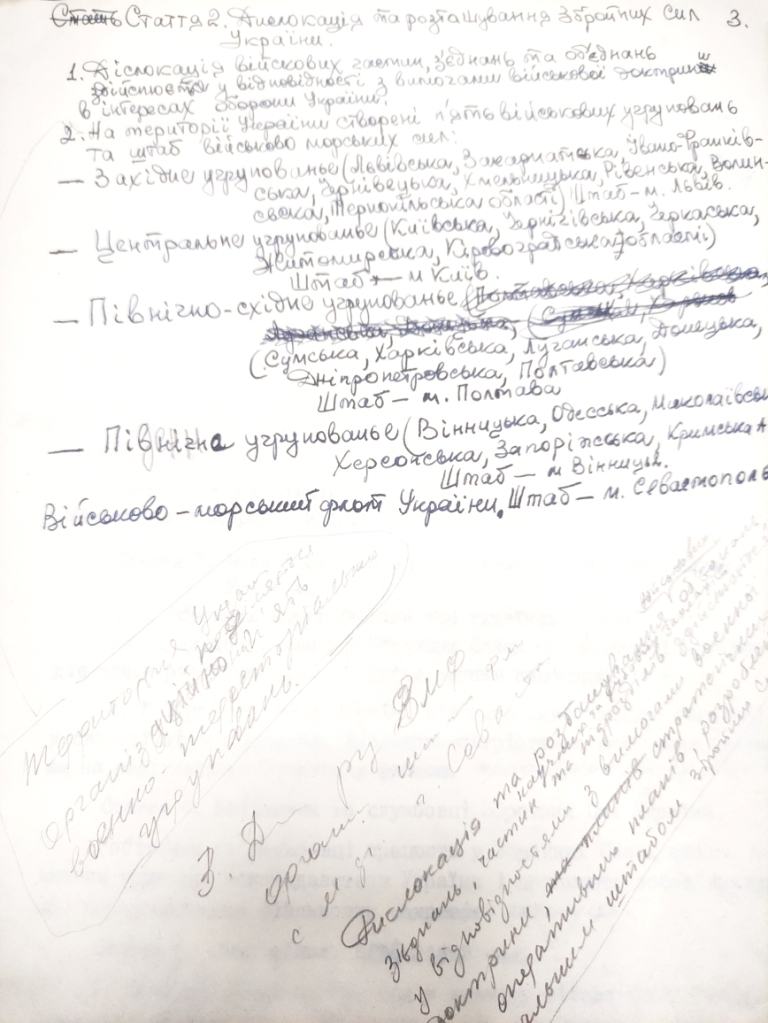 Стаття 2. Дислокація та розташування Збройних сил 3.
України.
1. Діслокація військових частин, з'єднань та об'єднань
здійснюється у відповідності з вимогами військової доктрини
в інтересах оборони України.
2. На території України створені п'ять військових угруповань
та штаб військово морських сил:
— Західне угрупованье (Львівська, Закарпатська, Івано-Франків-
ська, Чернівецька, Хмельницька, Рівенська, Волин-
ська, Тернопільська області) Штаб – м. Львів.
— Центральне угрупованье (Київська, Чернігівська, Черкаська,
Житомирська, Кіровоградська області)
Штаб — м Київ.
— Північно-східне угрупованье
(Сумська, Харківська, Луганська, Донецька,
Дніпропетровська, Полтавська)
Штаб — м. Полтава
— Північне угрупованье (Вінницька, Одесська, Миколаївськ
Херсонська, Запоріжська, Кримська А
Штаб — м Вінниця.
Військово – морський флот України. Штаб – м. Севастополь
Територия Украї
організаційно
п'ять
военно-територіальних
угруповань.
3. Для ВМФ
органі
с м. Сева
Дислокація та розташування об'єднань,
з'єднань, частин та підрозділів здійснюється
у відповідностями з вимогами военної
доктрини та планів стратегічних
оперативних планів розробле
альним штабом Збройних С